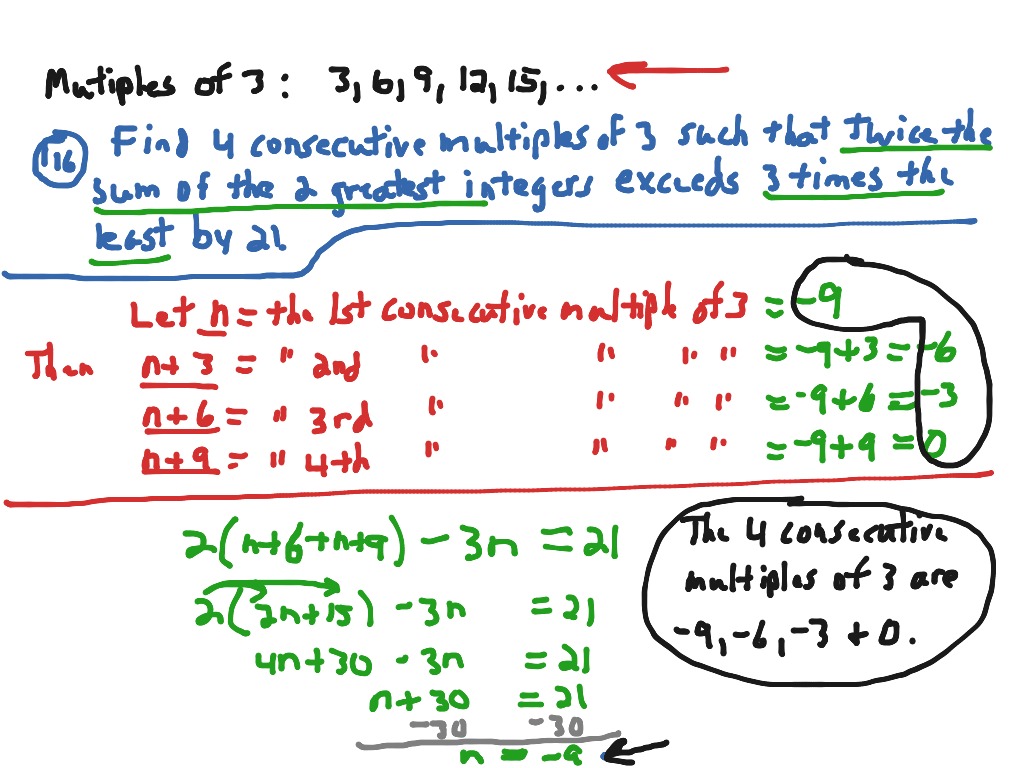 Mutiples of 3 : 3, 6, 9, 12, 15, ...
T16 Find 4 consecutive multiples of 3 such that Twice the
sum of the 2 greatest integers exceeds 3 times the
least by 21.
Let n = the 1st consecutive multiple of 3 = -9
Then n+3 = " 2nd " " " " = -9+3 = -6
n+6 = " 3rd " " " " = -9+6 = -3
n+9 = " 4th " " " " = -9+9 = 0
2(n+6+n+9) - 3n = 21
2(2n+15) - 3n = 21
4n+30 - 3n = 21
n+30 = 21
-30 -30
n = -9
The 4 consecutive
multiples of 3 are
-9, -6, -3 + 0.